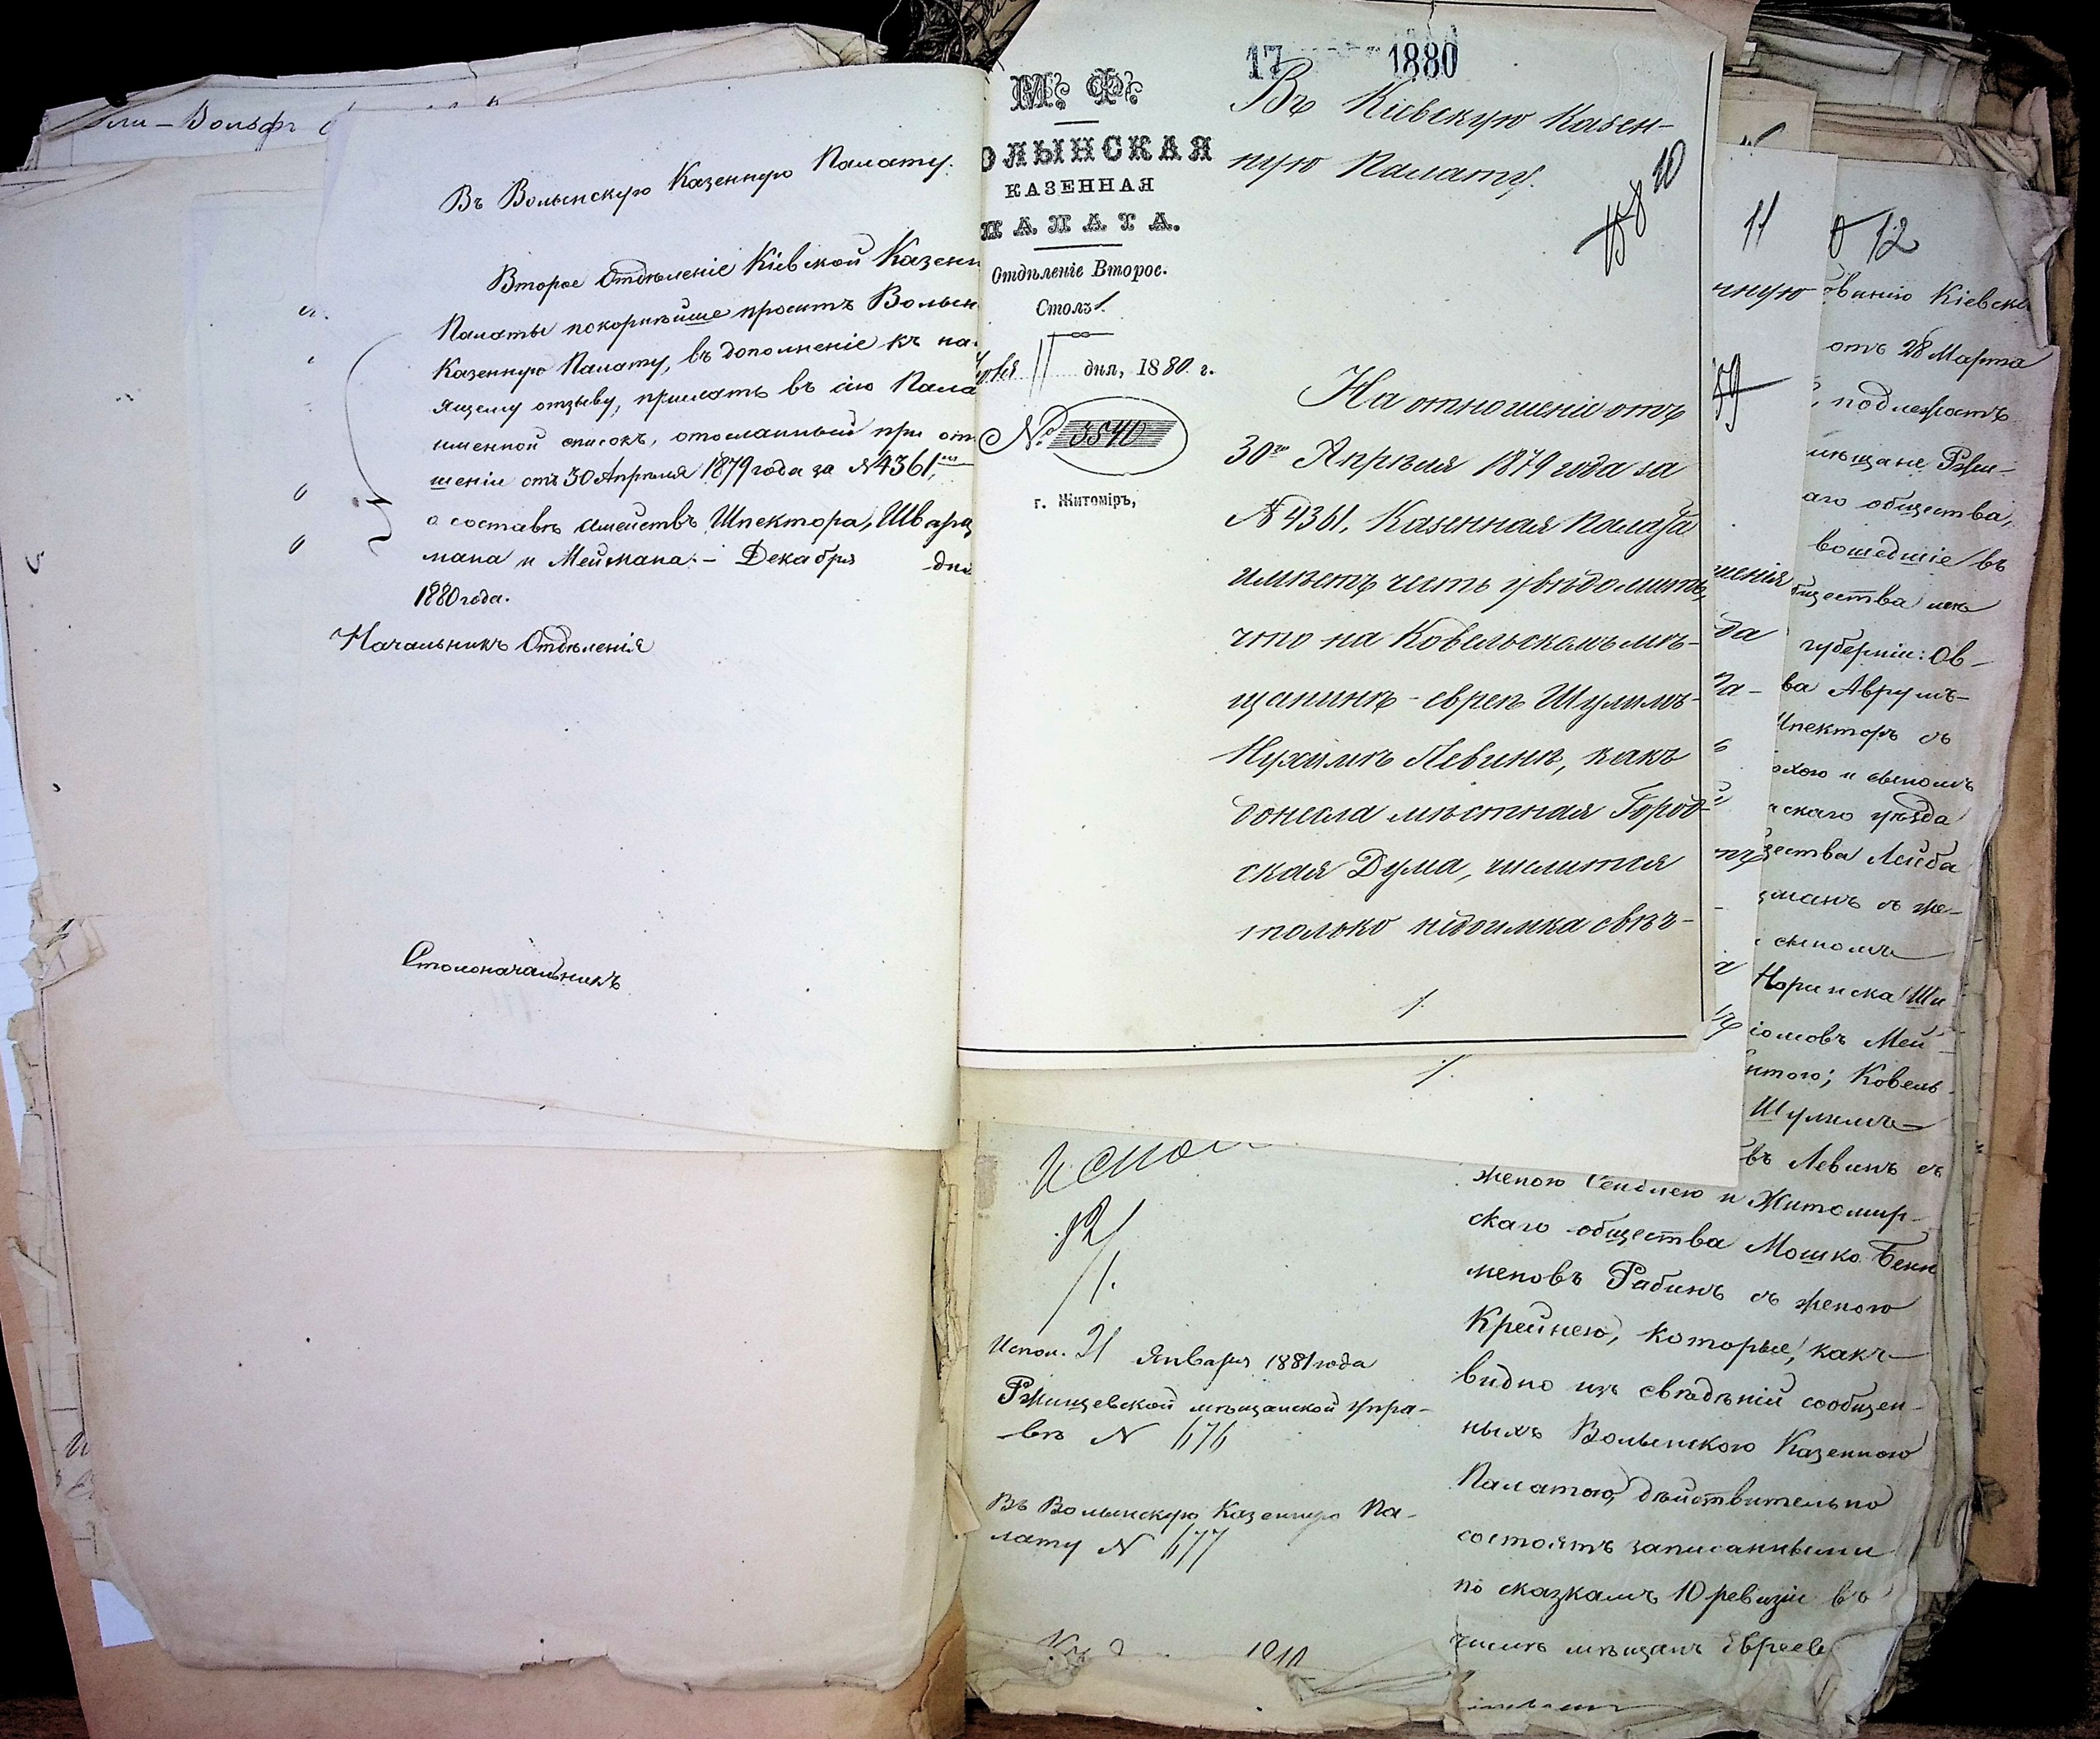 Въ Волынскую Казенную Палату.
Второе Отдѣленіе Кіевской Казенн
Палаты покорнѣйше проситъ Волын
Казенную Палату, въ дополненіе къ на
ящему отзыву, прислать въ сію Пала
именной списокъ, отосланный при от
шеніи отъ 30 Апрѣля 1879 года за №4361,
о составѣ семействъ Шпектора, Шварц
мана и Меймана. – Декабря дня
1880 года.
Начальникъ Отдѣленія
Столоначальникъ
17 1880
М. Ф.
ОЛЫНСКАЯ
КАЗЕННАЯ
ПАЛАТА.
Отдѣленіе Второе.
Столъ 1.
11 дня, 1880 г.
№ 3540
г. Житоміръ,
Въ Кіевскую Казен-
ную Палату.
10
На отношеніе отъ
30го Апрѣля 1879 года за
№ 4361, Казенная Палата
имѣетъ честь увѣдомить,
что на Ковельскомъ мѣ-
щанинѣ - евреѣ Шулимѣ-
Нухимѣ Левинѣ, какъ
донесла мѣстная Город-
ская Дума, числится
только недоимка свѣч-
1.
1.
11
нную
59
шенія
да
Па-
12
ванію Кіевск
отъ 28 Марта
подлежатъ
мѣщане Ржи-
аго общества,
вошедшіе въ
бщества изъ
губерніи: Ов-
ва Аврумъ-
Шпекторъ съ
охою и сыномъ
скаго уѣзда
щества Лейба
цманъ съ же-
сыномъ
Норинска
іомовъ Мей-
Ковель-
Шулимъ-
въ Левинъ съ
женою и Житомир-
скаго общества Мошко Бени
меновъ Рабинъ съ женою
Крейнею, которые, какъ
видно изъ свѣдѣній сообщен-
ныхъ Волынскою Казенною
Палатою, дѣйствительно
состоятъ записанными
по сказкамъ 10 ревизіи въ
числѣ мѣщанъ Евреевъ
Испол. 21 Января 1881 года
Ржищевской мѣщанской упра-
вѣ № 676
Въ Волынскую Казенную Па-
лату № 677